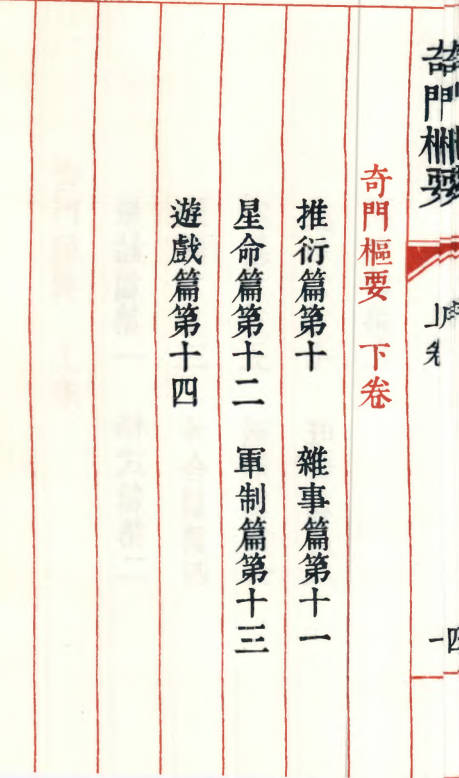 奇門樞要 下卷
推衍篇第十 雜事篇第十一
星命篇第十二 軍制篇第十三
遊戲篇第十四